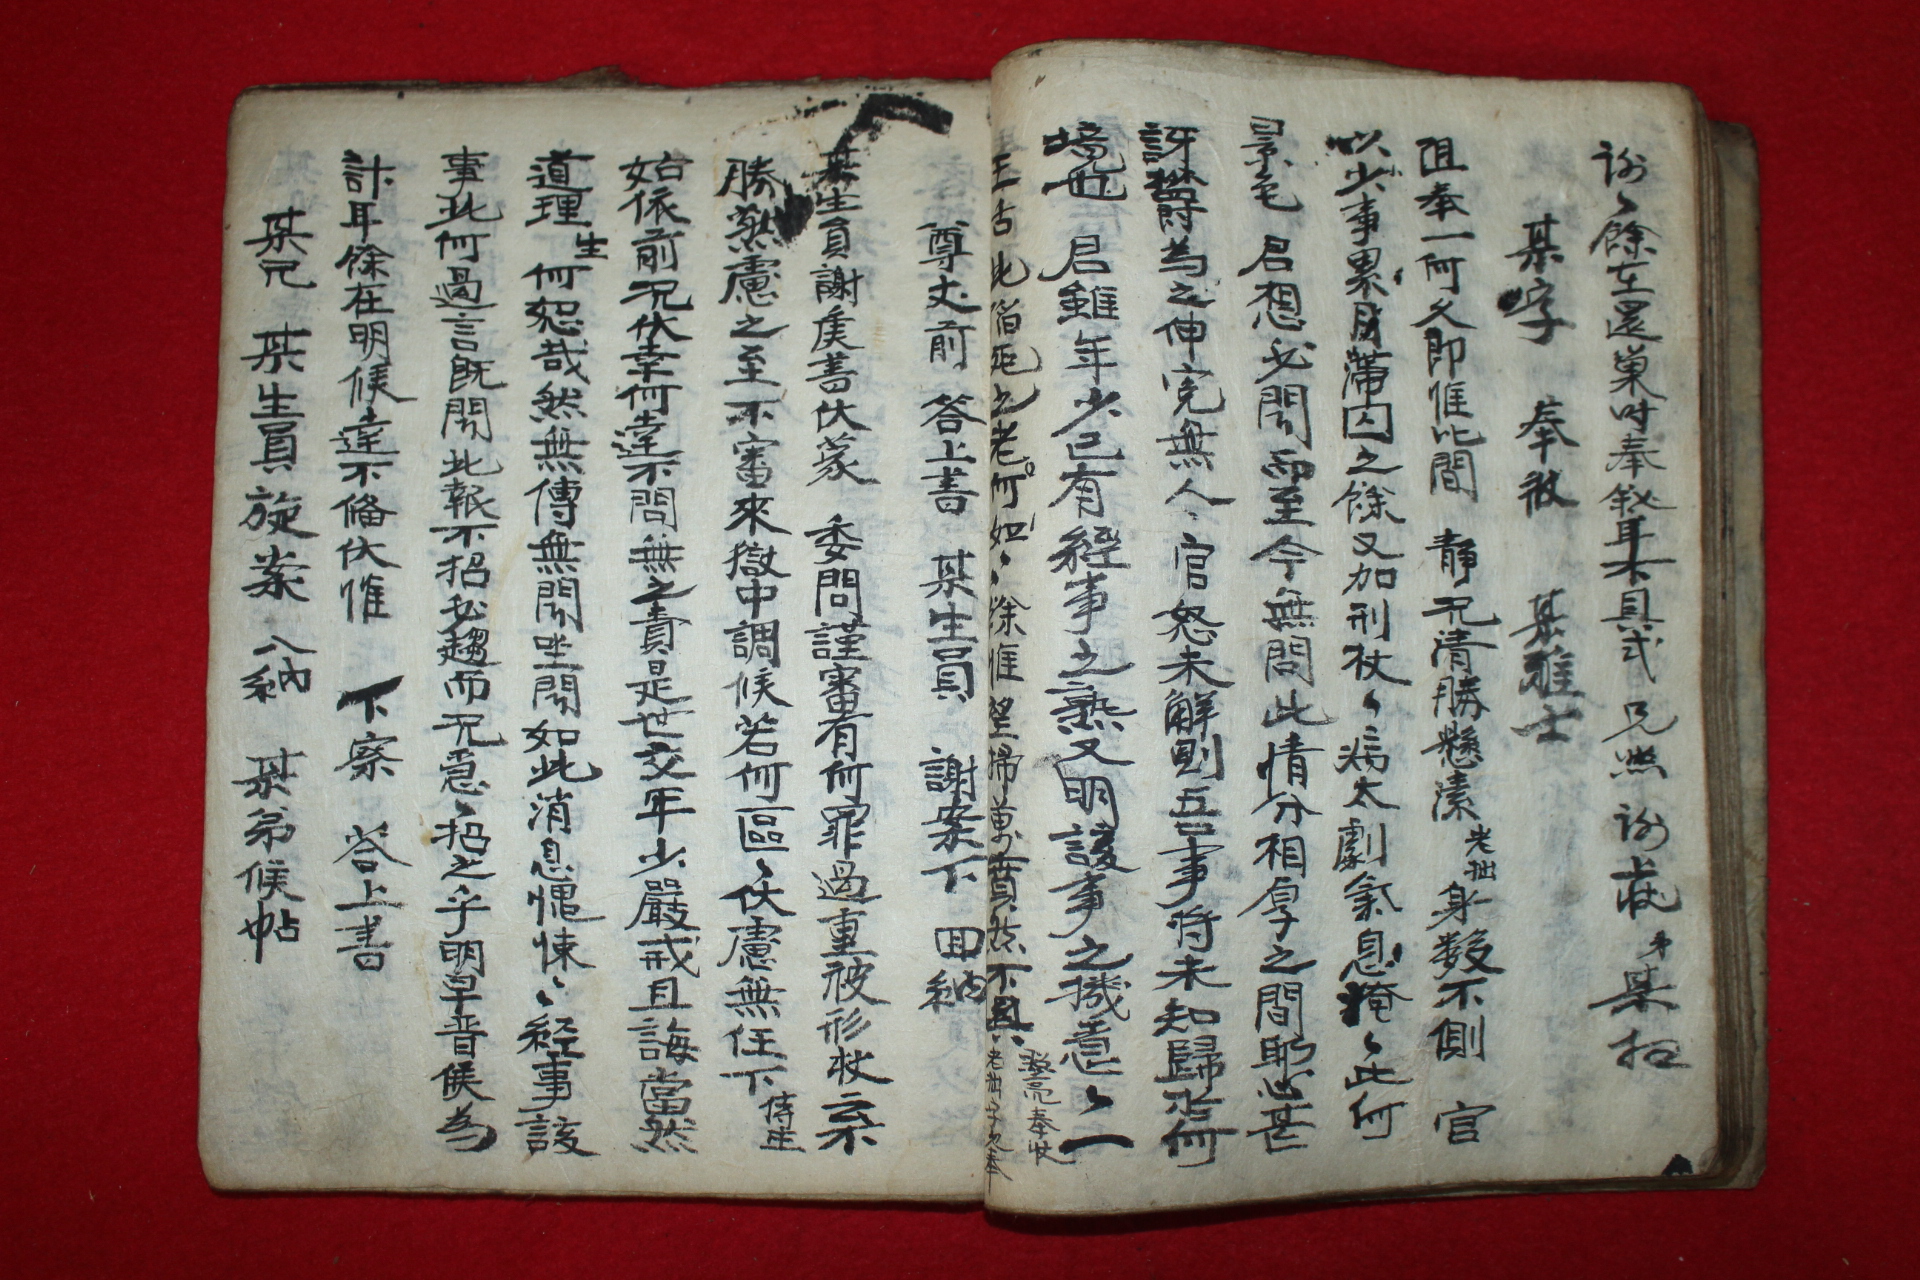 謝〻餘在還巢時奉敘耳不具式 兄照 謝疏 弟某拜
某字 奉被 某雅士
阻奉一何久即惟比間 靜况清勝懸溸 老拙身数不側 官
以少事累月滯囚之餘又加刑杖〻病太劇氣息掩〻此何
景色 君想必聞而至今無問此情分相厚之間耶心甚
訝欝為之伸寃無人 官怒未解則吾事将未知歸於何
境也 君雖年少已有經事之熟又明該事之機意〻一
老何如〻餘惟 不具
尊丈前 答上書 某生員 謝案下 回納
某生員謝矦善伏蒙 委問謹審有何罪過重被形杖云不
勝㷱慮之至不審來獄中調候若何區〻伏慮無任下 侍生
始依前况伏幸何達不問無之責是世交年少嚴戒且誨當然
道理 生何恕哉然無傳無聞坐聞如此消息愧悚〻經事該
事此何過言既聞此報不招必趨而况意〻招之乎明早晋候為
計耳餘在明候達不備伏惟 下察 答上書
某兄 某生員旋案 入納 某弟候帖